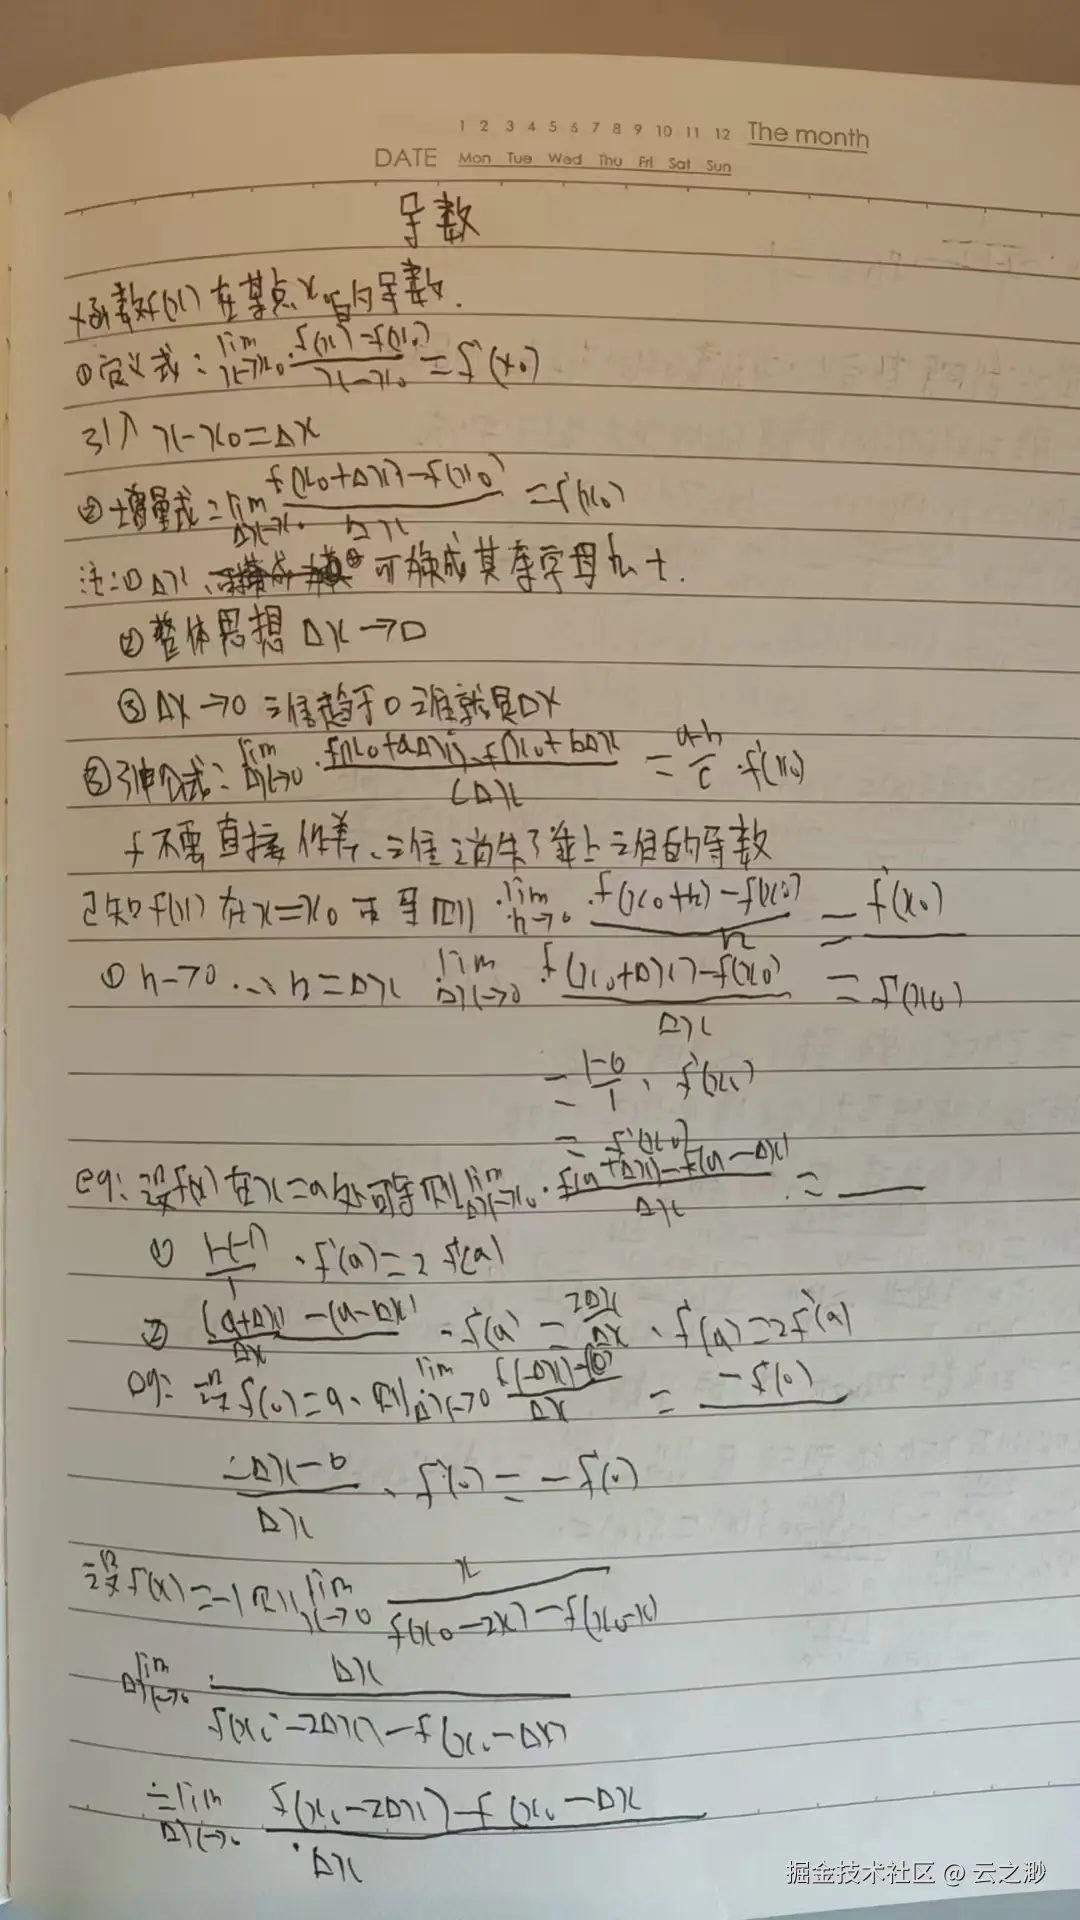 1 2 3 4 5 6 7 8 9 10 11 12 The month
DATE Mon Tue Wed Thu Fri Sat Sun
导数
函数f(x)在某点x。的导数.
①定义式: lim x→x₀ (f(x)-f(x₀))/(x-x₀) = f'(x₀)
引入 x-x₀=Δx
②增量式= lim Δx→x₀ (f(x₀+Δx)-f(x₀))/Δx = f'(x₀)
注:① Δx、可换成其李字母h、t.
②整体思想 Δx→0
③ Δx→0 谁趋于0谁就是Δx
③引申公式: lim Δx→0 (f(x₀+aΔx)-f(x₀+bΔx))/(cΔx) = (a-b)/c · f'(x₀)
f不要直接作差、谁消失了乘上谁的导数
已知f(x)在x=x₀可导则 lim h→0 (f(x₀+h)-f(x₀))/h = f'(x₀)
① h→0 ∴ h=Δx lim Δx→0 (f(x₀+Δx)-f(x₀))/Δx = f'(x₀)
= (1-0)/1 · f'(x₀)
= f'(x₀)
eg: 设f(x)在x=a处可导则 lim Δx→x₀ (f(a+Δx)-f(a-Δx))/Δx =
① (1-(-1))/1 · f'(a)=2f'(a)
② ((a+Δx)-(a-Δx))/Δx · f'(a) = 2Δx/Δx · f'(a)=2f'(a)
设f(0)=a、则 lim Δx→0 (f(-Δx)-f(0))/Δx = -f'(0)
(-Δx-0)/Δx · f'(0) = -f'(0)
设f(x)=-1则 lim x→0 x/(f(x₀-2x)-f(x₀-x))
lim Δx→0 Δx/(f(x₀-2Δx)-f(x₀-Δx))
= lim Δx→0 (f(x₀-2Δx)-f(x₀-Δx)/Δx
掘金技术社区 @ 云之渺